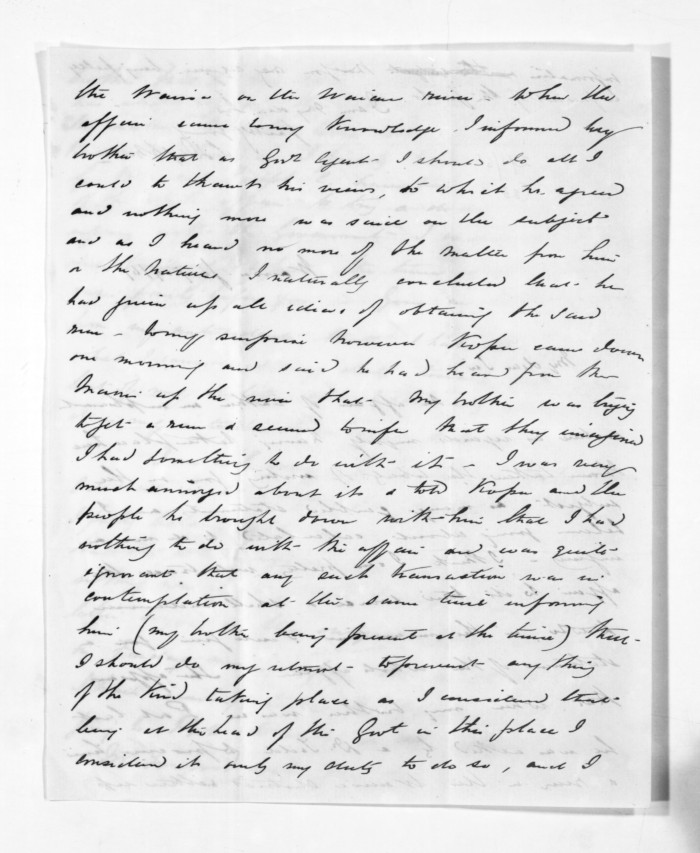 the Wairoa on the Waicau river - When the
affair came to my Knowledge I informed my
brother that as Govt Agent I should do all I
could to thwart his views, to which he agreed
and nothing more was said on the subject
and as I heard no more of the matter from him
or the Natives I naturally concluded that he
had given up all ideas of obtaining the said
run - to my surprise however Kopu came down
one morning and said he had heard from the
Maori up the river that my brother was trying
to get a run & seemed to infer that they imagined
I had something to do with it - I was very
much annoyed about it & told Kopu and the
people he brought down with him that I had
nothing to do with the affair and was quite
ignorant that any such transaction was in
contemplation at the same time informing
him (my brother being present at the time) that
I should do my utmost to prevent any thing
of the Kind taking place as I considered that
being at the head of the Govt in this place I
considered it only my duty to do so, and I